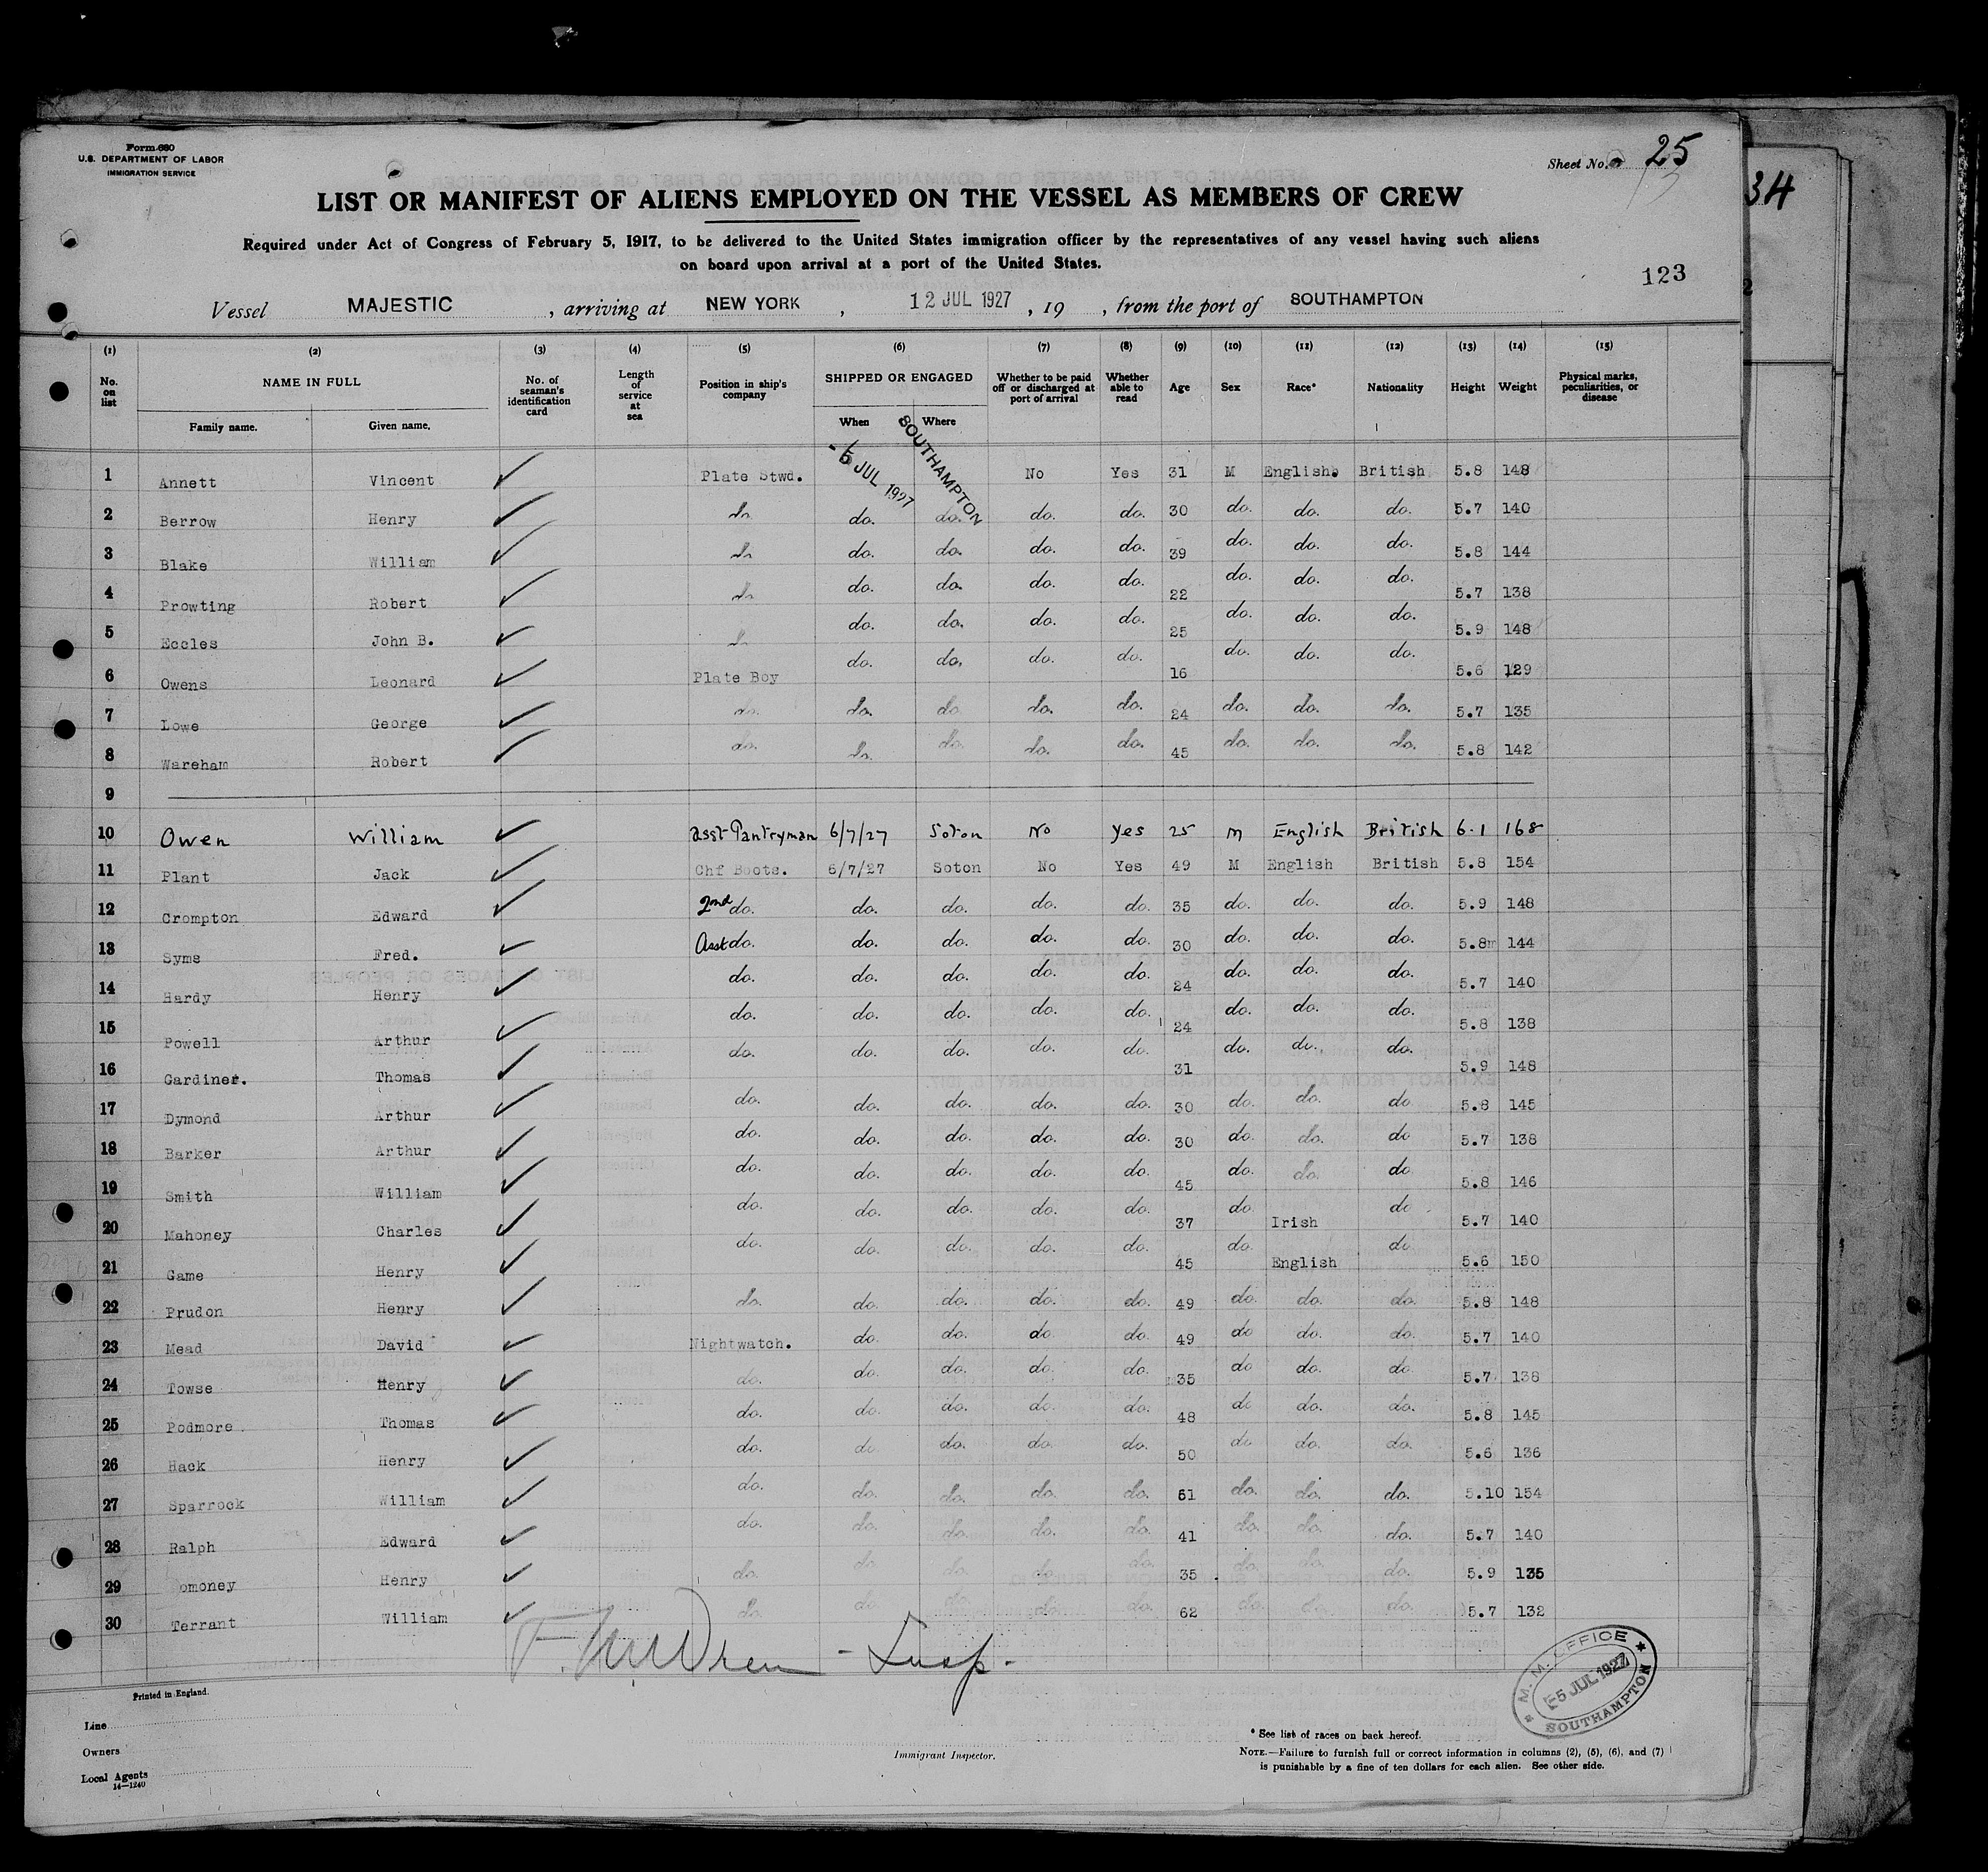 Form 680
U.S. DEPARTMENT OF LABOR
IMMIGRATION SERVICE
Sheet No. 25
34
LIST OR MANIFEST OF ALIENS EMPLOYED ON THE VESSEL AS MEMBERS OF CREW
Required under Act of Congress of February 5, 1917, to be delivered to the United States immigration officer by the representatives of any vessel having such aliens
on board upon arrival at a port of the United States.
123
Vessel MAJESTIC, arriving at NEW YORK, 12 JUL 1927, 19 , from the port of SOUTHAMPTON
(1) (2) (3) (4) (5) (6) (7) (8) (9) (10) (11) (12) (13) (14) (15)
No. on list NAME IN FULL No. of seaman's identification card Length of service at sea Position in ship's company SHIPPED OR ENGAGED Whether to be paid off or discharged at port of arrival Whether able to read Age Sex Race* Nationality Height Weight Physical marks, peculiarities, or disease
Family name. Given name. When Where
-5 JUL 1927 SOUTHAMPTON
1 Annett Vincent Plate Stwd. No Yes 31 M English. British 5.8 148
2 Berrow Henry do. do. do. do. do. 30 do. do. do. 5.7 140
3 Blake William do. do. do. do. do. 39 do. do. do. 5.8 144
4 Prowting Robert do. do. do. do. do. 22 do. do. do. 5.7 138
5 Eccles John B. do. do. do. do. do. 25 do. do. do. 5.9 148
6 Owens Leonard Plate Boy do. do. do. do. 16 do. do. do. 5.6 129
7 Lowe George do. do. do. do. do. 24 do. do. do. 5.7 135
8 Wareham Robert do. do. do. do. do. 45 do. do. do. 5.8 142
9
10 Owen William asst Pantryman 6/7/27 Soton No Yes 25 M English British 6.1 168
11 Plant Jack Chf Boots. 6/7/27 Soton No Yes 49 M English British 5.8 154
12 Crompton Edward 2nd do. do. do. do. do. 35 do. do. do. 5.9 148
13 Syms Fred. Asst do. do. do. do. do. 30 do. do. do. 5.8 144
14 Hardy Henry do. do. do. do. do. 24 do. do. do. 5.7 140
15 Powell Arthur do. do. do. do. do. 24 do. do. do. 5.8 138
16 Gardiner. Thomas do. do. do. do. do. 31 do. do. do. 5.9 148
17 Dymond Arthur do. do. do. do. do. 30 do. do. do 5.8 145
18 Barker Arthur do. do. do. do. do. 30 do. do. do 5.7 138
19 Smith William do. do. do. do. do. 45 do. do. do 5.8 146
20 Mahoney Charles do. do. do. do. do. 37 do. Irish do 5.7 140
21 Game Henry do. do. do. do. do. 45 do. English do. 5.6 150
22 Prudon Henry do. do. do. do. do. 49 do. do. do. 5.8 148
23 Mead David Nightwatch. do. do. do. do. 49 do do. do. 5.7 140
24 Towse Henry do. do. do. do. do. 35 do do. do. 5.7 138
25 Podmore Thomas do. do. do. do. do. 48 do do. do. 5.8 145
26 Hack Henry do. do. do. do. do. 50 do do. do. 5.6 136
27 Sparrock William do. do. do. do. do. 51 do. do. do. 5.10 154
28 Ralph Edward do. do. do. do. do. 41 do. do. do. 5.7 140
29 omoney Henry do. do. do. do. do. 35 do. do. do. 5.9 135
30 Terrant William do. do. do. do. do. 62 do. do. do. 5.7 132
Insp.
M. M. OFFICE
5 JUL 1927
SOUTHAMPTON
Printed in England.
Line
Owners
Local Agents
14—1240
Immigrant Inspector.
* See list of races on back hereof.
NOTE.—Failure to furnish full or correct information in columns (2), (5), (6), and (7)
is punishable by a fine of ten dollars for each alien. See other side.